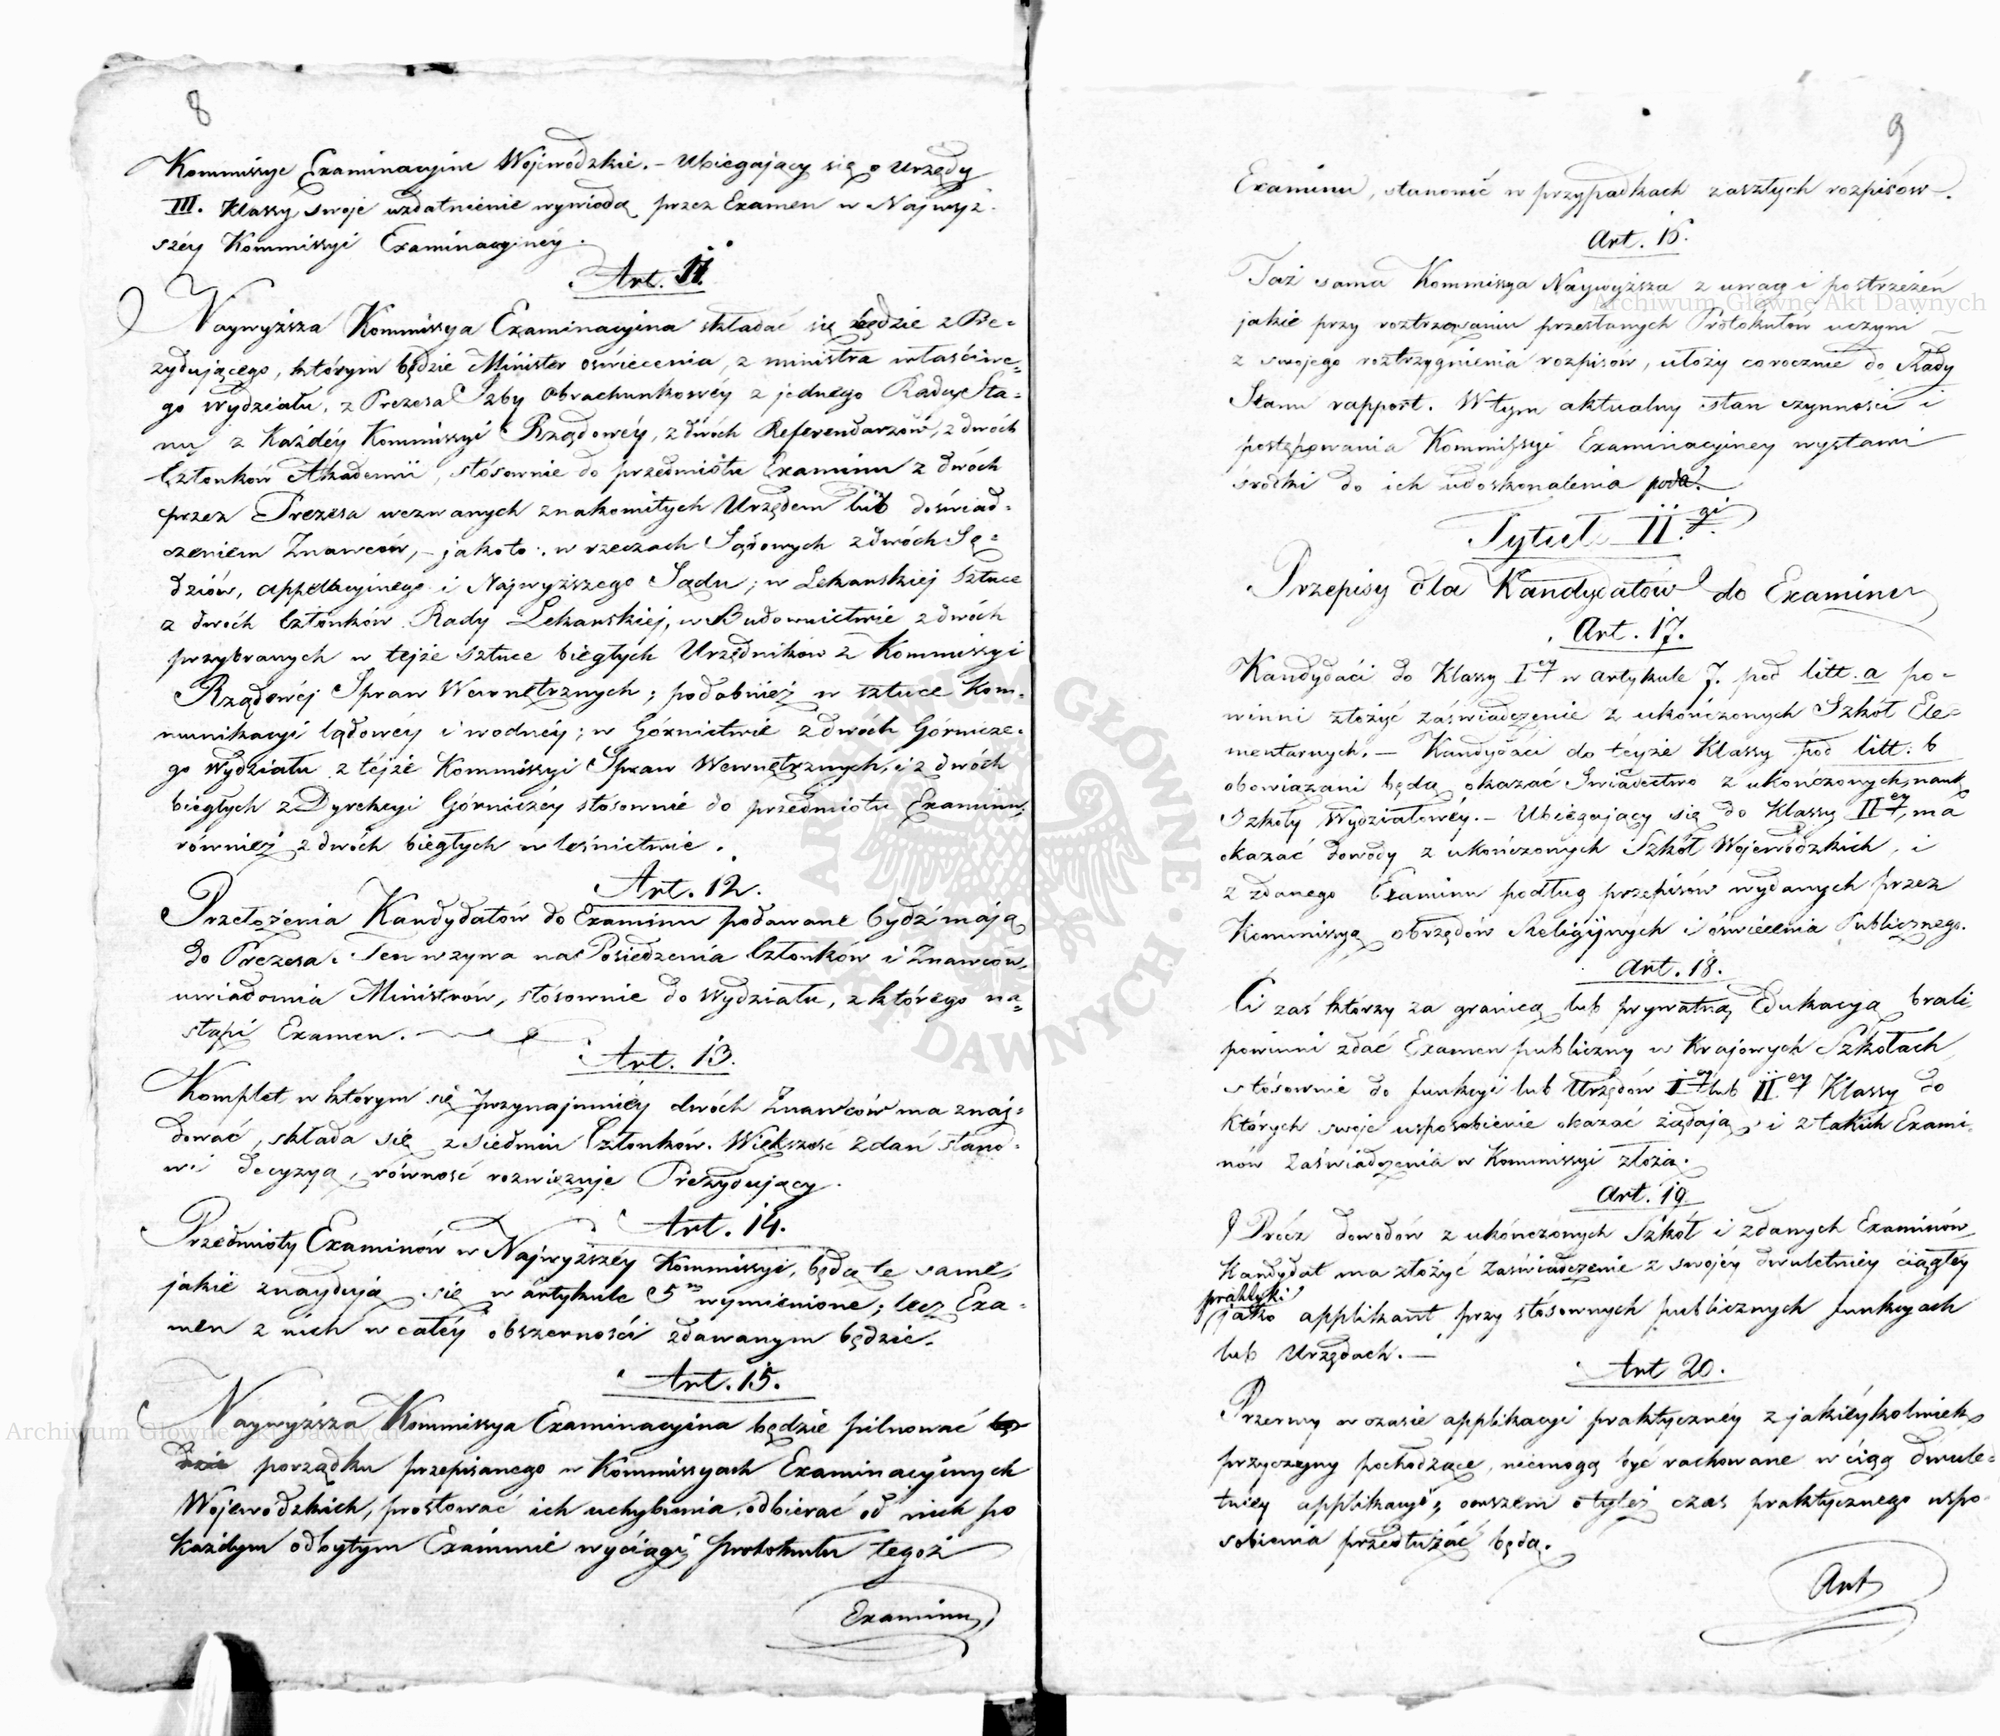 8
Kommissye Examinacyine Wojewódzkie. – Ubiegający się o Urzędy
III. Klassy swoje uzdatnienie wywiodą przez Examen w Najwyż-
széy Kommissyi Examinacyinéy.
Art. 11.
Naywyższa Kommissya Examinacyina składać się będzie z Pre-
zydującego, którym będzie Minister oświecenia, z ministra właściwe-
go Wydziału, z Prezesa Izby Obrachunkowéy z jednego Radcy Sta-
nu z każdéy Kommissyi Rządowéy, z dwóch Referendarzów, z dwóch
Członków Akademii, stósownie do przedmiotu Examinu z dwóch
przez Prezesa wezwanych znakomitych Urzędem lub doświad-
czeniem Znawców, – jako to: w rzeczach Sądowych z dwóch Sę-
dziów, appellacyinego i Najwyższego Sądu; w Lekarskiej Sztuce
z dwóch Członków Rady Lekarskiej, w Budownictwie z dwóch
przybranych w tejże sztuce biegłych Urzędników z Kommissyi
Rządowéj Spraw Wewnętrznych; podobnież w sztuce Kom-
munikacyi lądowéy i wodnéy; w Górnictwie z dwóch Górnicze-
go Wydziału z téjże Kommissyi Spraw Wewnętrznych, i z dwóch
biegłych z Dyrekcyi Górniczéy stósownie do przedmiotu Examinu,
również z dwóch biegłych w leśnictwie.
Art. 12.
Przełożenia Kandydatów do Examinu podawane bydź mają
do Prezesa. Ten wzywa na Posiedzenia Członków i Znawców,
uwiadomia Ministrów, stósownie do Wydziału, z którego na-
stąpi Examen.
Art. 13.
Komplet w którym się przynajmniéy dwóch Znawców ma znaj-
dować, składa się z siedmiu Członków. Większość zdań stano-
wi decyzyą, równość rozwiązuje Prezydujący.
Art. 14.
Przedmioty Examinów w Najwyższéy Kommissyi, będą te same,
jakie znaydują się w artykule 5m wymienione; lecz Exa-
men z nich w całéy obszerności zdawanym będzie.
Art. 15.
Naywyższa Kommissya Examinacyina będzie pilnować
porządku przepisanego w Kommissyach Examinacyinych
Wojewódzkich, prostować ich uchybienia, odbierać od nich po
każdym odbytym Examinie wyciągi protokułu tegoż
Examinu
9
Examinu, stanowić w przypadkach zaszłych rozpisów.
Art. 16.
Taż sama Kommissya Naywyższa z uwag i postrzeżeń
jakie przy roztrząsaniu przesłanych Protokułów uczyni
z swojego roztrzygnienia rozpisow, ułoży corocznie do Rady
Stanu rapport. W tym aktualny stan czynności i
postępowania Kommissyi Examinacyiney wystawi
środki do ich udoskonalenia poda.
Tytuł II.gi
Przepisy dla Kandydatów do Examinu
Art. 17.
Kandydaci do Klassy Iey w artykule 7. pod litt. a po-
winni złożyć zaświadczenie z ukończonych Szkół Ele-
mentarnych. – Kandydaci do téyże Klassy pod litt. b
obowiązani będą okazać Świadectwo z ukończonych nauk
Szkoły Wydziałowéy. – Ubiegający się do Klassy IIey, ma
okazać dowody z ukończonych Szkół Wojewódzkich, i
z zdanego Examinu podług przepisów wydanych przez
Kommissyą obrządów Religijnych i oświecenia Publicznego.
Art. 18.
Ci zaś którzy za granicą lub prywatną Edukacyą brali,
powinni zdać Examen publiczny w Krajowych Szkołach
stósownie do funkcyi lub Urzędów Iey lub IIey Klassy do
których swoje usposobienie okazać żądają, i z takich Exami-
nów Zaświadczenia w Kommissyi złożą.
Art. 19.
Prócz dowodów z ukończonych Szkół i zdanych Examinów
Kandydat ma złożyć Zaświadczenie z swojéy dwuletniey ciągłéy
praktyki
jako applikant przy stósownych publicznych funkcyach
lub Urzędach. –
Art 20.
Przerwy w czasie applikacyi praktycznéy z jakiéykolwiek
przyczyny pochodzące, niemogą być rachowane w ciąg dwule-
tniey applikacyi, owszem o tyleż czas praktycznego uspo-
sobienia przedłużać będą.
Art
Archiwum Główne Akt Dawnych
Archiwum Główne Akt Dawnych
ARCHIWUM GŁÓWNE AKT DAWNYCH